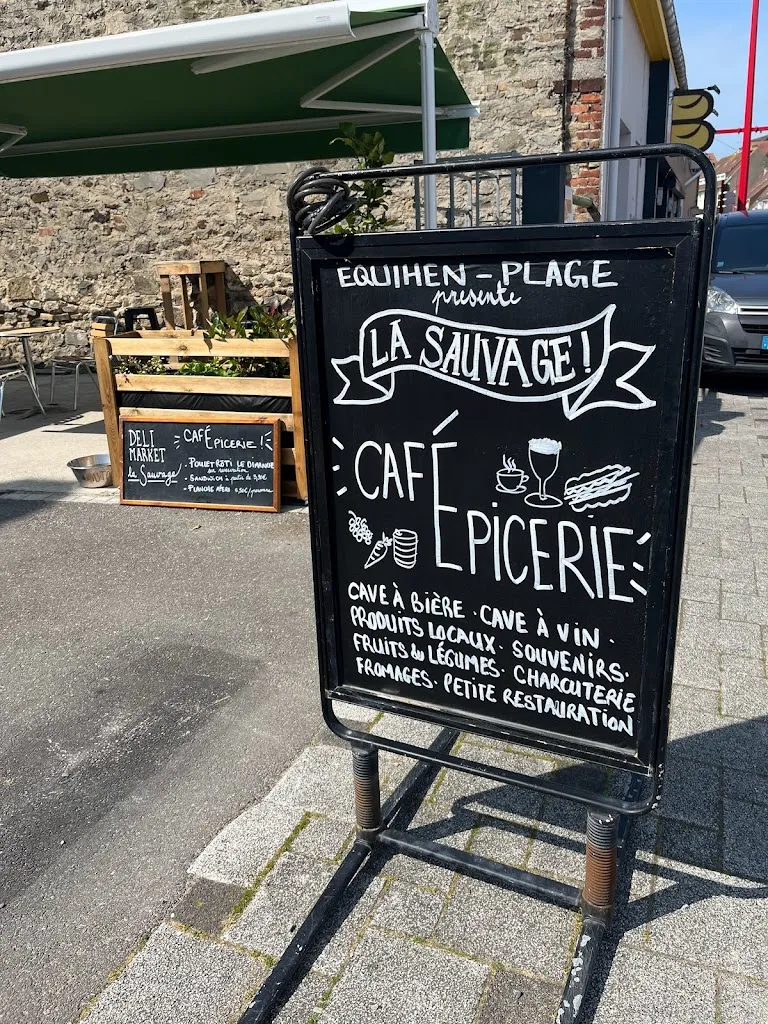 EQUIHEN - PLAGE
présente
LA SAUVAGE !
CAFÉ
ÉPICERIE
CAVE À BIÈRE · CAVE À VIN ·
PRODUITS LOCAUX · SOUVENIRS ·
FRUITS & LÉGUMES · CHARCUTERIE
FROMAGES · PETITE RESTAURATION
DELI
MARKET
la Sauvage
CAFÉPICERIE !
· POULET RÔTI LE DIMANCHE
sur réservation
· SANDWICH à partir de
· PLANCHE APÉRO